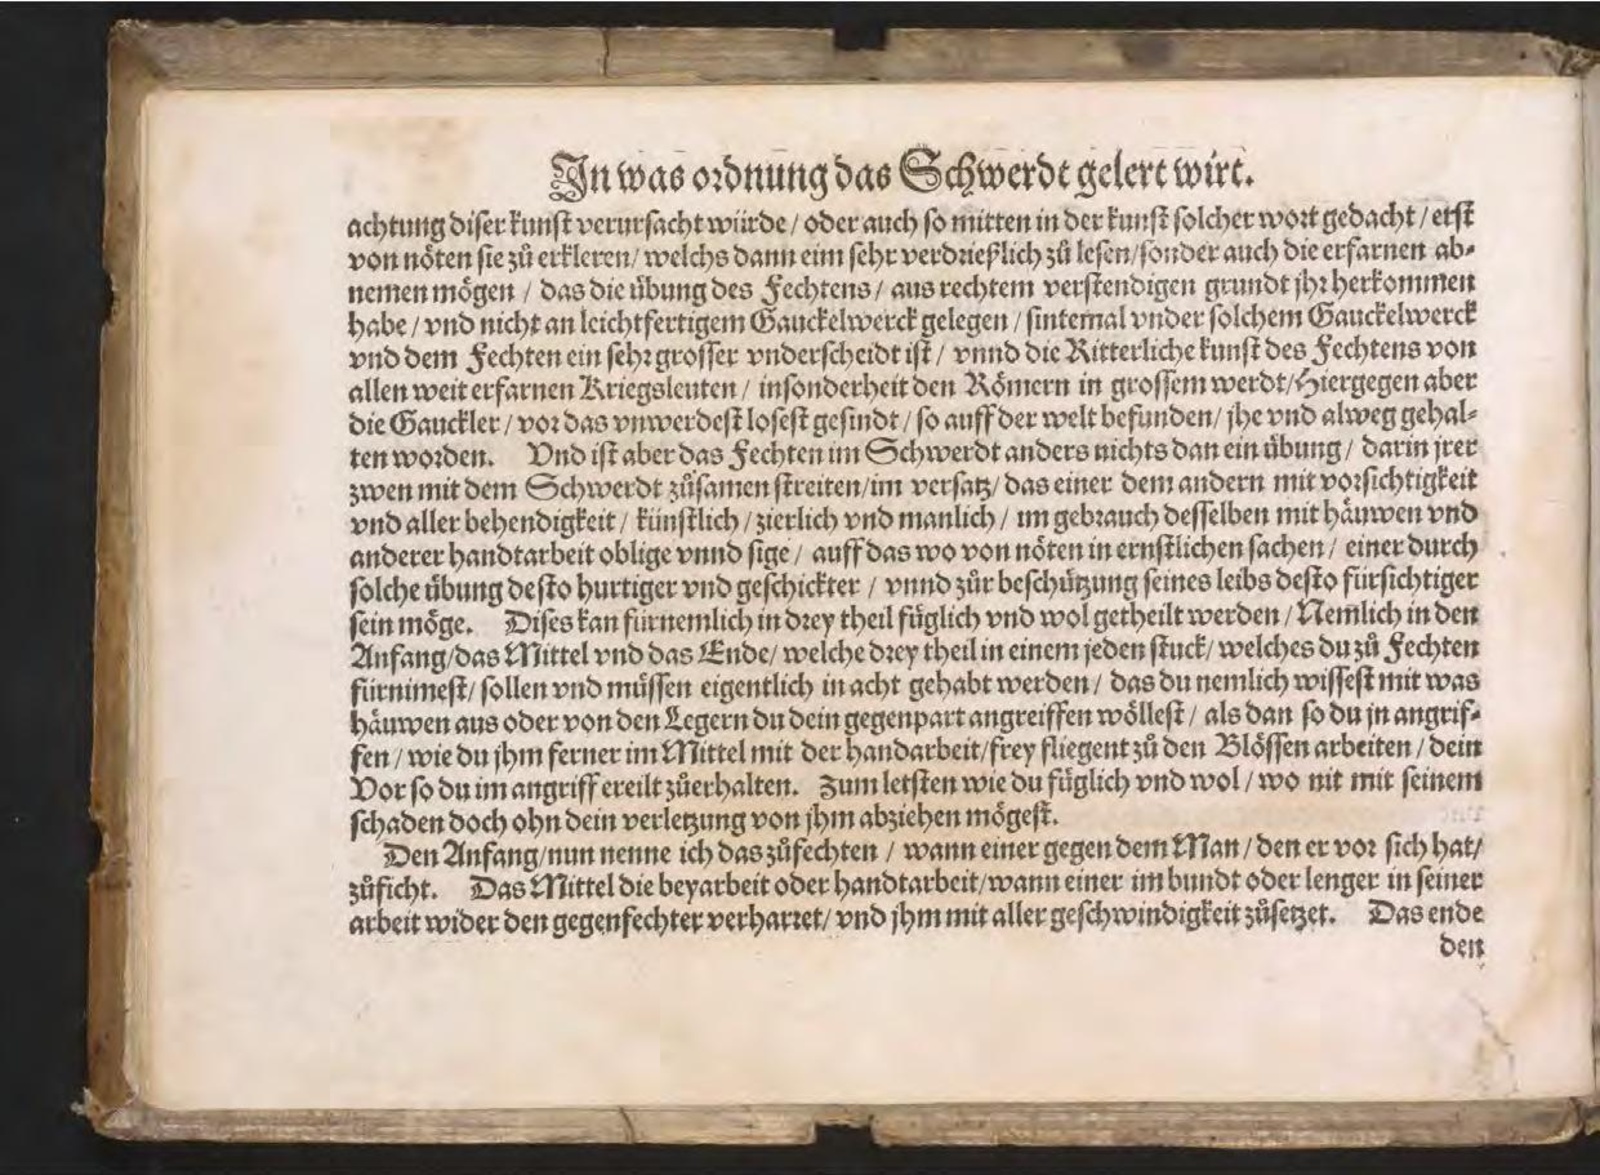 In was ordnung das Schwerdt gelert wirt.
achtung diser kunst verursacht würde / oder auch so mitten in der kunst solcher wort gedacht / erst
von nöten sie zů erkleren / welchs dann eim sehr verdrießlich zů lesen / sonder auch die erfarnen ab-
nemen mögen / das die übung des Fechtens / aus rechtem verstendigen grundt jhr herkommen
habe / vnd nicht an leichtfertigem Gauckelwerck gelegen / sintemal vnder solchem Gauckelwerck
vnd dem Fechten ein sehr grosser vnderscheidt ist / vnnd die Ritterliche kunst des Fechtens von
allen weit erfarnen Kriegsleuten / insonderheit den Römern in grossem werdt / Hiergegen aber
die Gauckler / vor das vnwerdest losest gesindt / so auff der welt befunden / jhe vnd alweg gehal-
ten worden. Vnd ist aber das Fechten im Schwerdt anders nichts dan ein übung / darin jrer
zwen mit dem Schwerdt zůsamen streiten / im versatz / das einer dem andern mit vorsichtigkeit
vnd aller behendigkeit / künstlich / zierlich vnd manlich / im gebrauch desselben mit häuwen vnd
anderer handtarbeit oblige vnnd sige / auff das wo von nöten in ernstlichen sachen / einer durch
solche übung desto hurtiger vnd geschickter / vnnd zůr beschützung seines leibs desto fürsichtiger
sein möge. Dises kan fürnemlich in drey theil füglich vnd wol getheilt werden / Nemlich in den
Anfang / das Mittel vnd das Ende / welche drey theil in einem jeden stuck / welches du zů Fechten
fürnimest / sollen vnd müssen eigentlich in acht gehabt werden / das du nemlich wissest mit was
häuwen aus oder von den Legern du dein gegenpart angreiffen wöllest / als dan so du jn angrif-
fen / wie du jhm ferner im Mittel mit der handarbeit / frey fliegent zů den Blössen arbeiten / dein
Vor so du im angriff ereilt zůerhalten. Zum letsten wie du füglich vnd wol / wo nit mit seinem
schaden doch ohn dein verletzung von jhm abziehen mögest.
Den Anfang / nun nenne ich das zůfechten / wann einer gegen dem Man / den er vor sich hat /
zůficht. Das Mittel die beyarbeit oder handtarbeit / wann einer im bundt oder lenger in seiner
arbeit wider den gegenfechter verharret / vnd jhm mit aller geschwindigkeit zůsetzet. Das ende
den